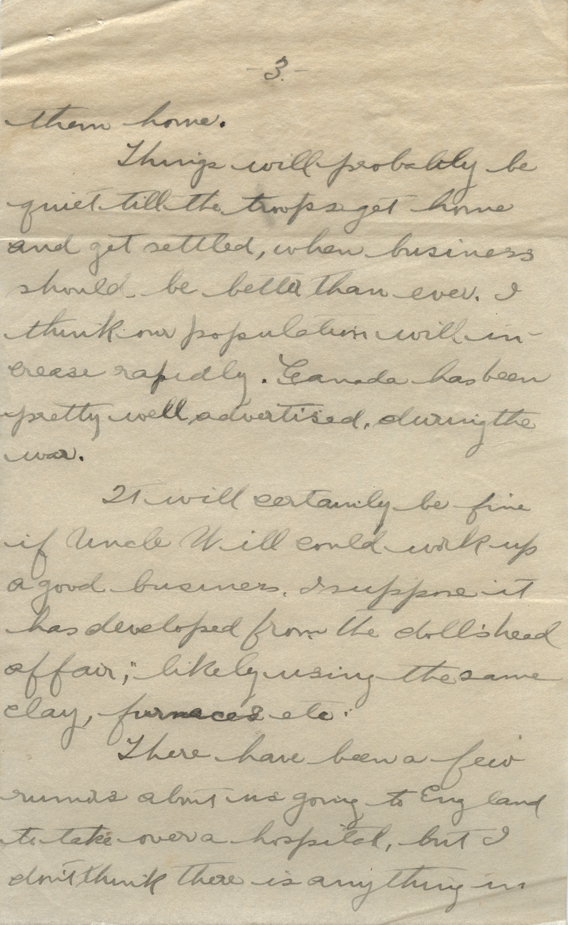 - 3. -
them home.
Things will probably be
quiet till the troops get home
and get settled, when business
should be better than ever. I
think our population will in-
crease rapidly. Canada has been
pretty well advertised, during the
war.
It will certainly be fine
if Uncle Will could work up
a good business. I suppose it
has developed from the doll's head
affair; likely using the same
clay, furnaces etc.
There have been a few
rumors about us going to England
to take over a hospital, but I
don't think there is anything in